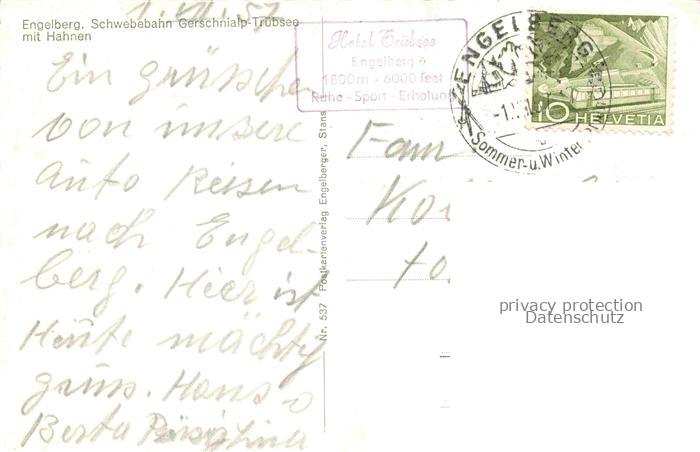 Engelberg, Schwebebahn Gerschnialp-Trübsee
mit Hahnen
Ein grüschen
von unsere
Auto Reisen
nach Engel-
berg. Hier ist
Heute mächtig
Hans
Berta
Nr. 537 Postkartenverlag Engelberger, Stans
Hotel Trübsee
Engelberg
1800 m - 6000 feet
Ruhe - Sport - Erholung
ENGELBERG
Sommer-u.Winter
10 HELVETIA
Fam
privacy protection
Datenschutz